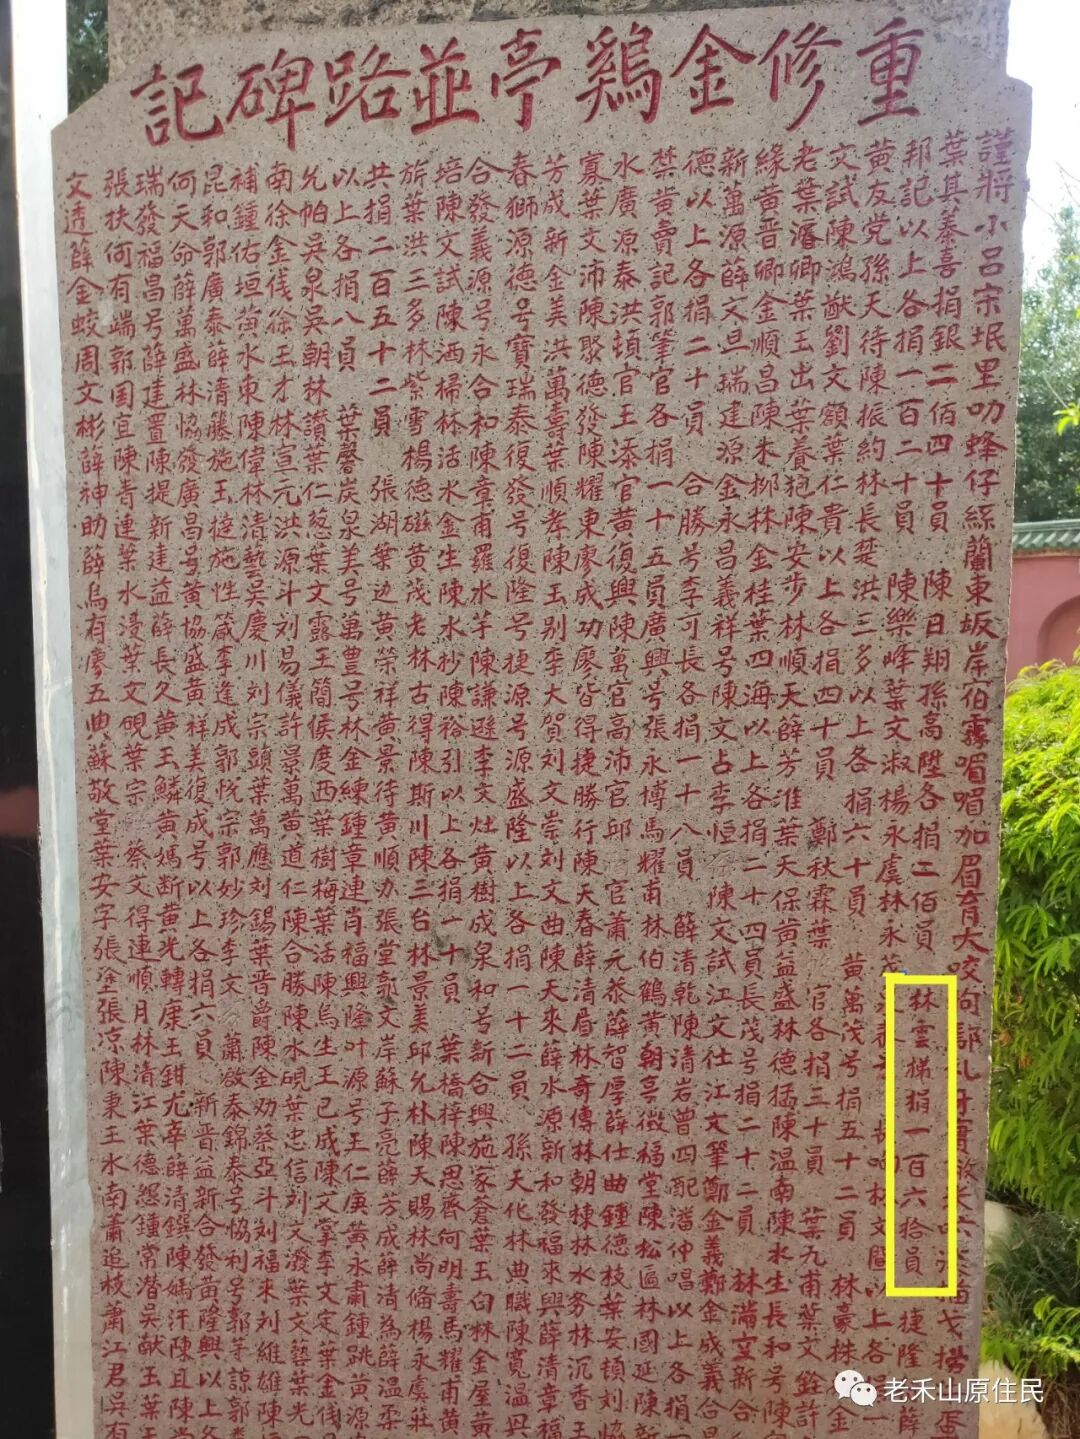 重修金鷄亭並路碑記
謹將小呂宋垊里叻蜂仔絲蘭東坂岸伯霧嵋嵋加眉育大咬
葉其蓁喜捐銀二佰四十員 陳日翔孫高陞各捐二佰員 林雲梯捐一百六拾員 捷隆
邦記以上各捐一百二十員 陳樂峰葉文淑楊永虞林永
黃友党孫天待陳振約林長椘洪三多以上各捐六十員 黃萬茂号捐五十二員 林豪株
文試陳鴻猷劉文額葉仁貴以上各捐四十員 鄭秋霖葉 官各捐三十員 葉九甫葉文銓許
老葉滣卿葉王出葉養抱陳安步林順天薛芳淮葉天保黃益盛林德猛陳溫南陳水生長和号陳
緣黃晋卿金順昌陳朱柳林金桂葉四海以上各捐二十四員長茂号捐二十二員 林湍 新合
新萬源薛文旦瑞建源金永昌義祥号陳文占李恒 陳文試江文仕江文筆鄭金義鄭金成義合
德以上各捐二十員 合勝号李可長各捐一十八員 薛清乾陳清岩曾四配潘仲唱以上各捐一
禁黃賣記郭筆官各捐一十五員廣興号張永博馬耀甫林伯鶴黃朝亭徵福堂陳松匾林國延陳新
水廣源泰洪頓官王添官黃復興陳萬官高沛官邱 官蕭元恭薛智厚薛仕曲鍾德枝葉安頓刘協
寡葉文沛陳聚德發陳耀東廖成功廖皆得捷勝行陳天春薛清眉林奇傳林朝棟林水务林沉香王
芳成新金美洪萬壽葉順孝陳玉别李大賀刘文崇刘文曲陳天來薛水源新和發福來興薛清章福
春獅源德号寶瑞泰復發号復隆号捷源号源盛隆以上各捐一十二員 孫天化林典職陳寬溫
合發義源号永合和陳章甫羅水芋陳謙遜李文灶黃樹成泉和号新合興施家蒼葉玉白林金屋黃
培陳文試陳洒掃林活水金生陳水抄陳裕引以上各捐一十員 葉橋梓陳思齋何明壽馬耀甫黃
旂葉洪三多林紫雪楊德磁黃茂老林古得陳斯川陳三台林景美邱允林陳天賜林尚俻楊永虞莊
共捐二百五十二員 張湖葉边黃榮祥黃景待黃順办張堂郭文岸蘇子亮薛芳成薛清為薛溫柔
以上各捐八員 葉馨炭泉美号萬豊号林金練鍾章連肖福興隆叶源号王仁庚黃永肅鍾跳黃源
允帕吳泉吳朝林讚葉仁慈葉文露王簡侯度西葉樹梅葉活陳烏生王已成陳文掌李文定葉金
南徐金伐徐王才林宣元洪源斗刘易儀許景萬黄道仁陳合勝陳水硯葉忠信刘文潑葉文藝葉光
補鍾佑垣黃水東陳偉林清藝吳慶川刘宗頭葉萬應刘錫葉晋爵陳金劝蔡亞斗刘福來刘維雄陳
昆和郭廣泰薛清籐施玉㨗施性箴李逢成郭恍宗郭妙珍李文 蕭啟泰錦泰号恊利号郭芋諒郭
何天命薛萬盛林恊發廣昌号黃協盛黃祥美復成号以上各捐六員 新晋益新合發黃隆興以上各
瑞發福昌号薛建置陳提新建益薛長久黄玉鱗黃媽断黃光轉康王鉗尤奉薛清鐉陳媽汗陳且陳尚
張扶何有端郭国宜陳青連葉水浸葉文硯葉宗 蔡文得連順月林清江葉德愿鍾常潜吳献王葉王
文透薛金蛟周文彬薛神助薛烏有廖五典蘇敬堂葉安字張塗張凉陳東王水涌蕭追枝蕭江君吳有
老禾山原住民